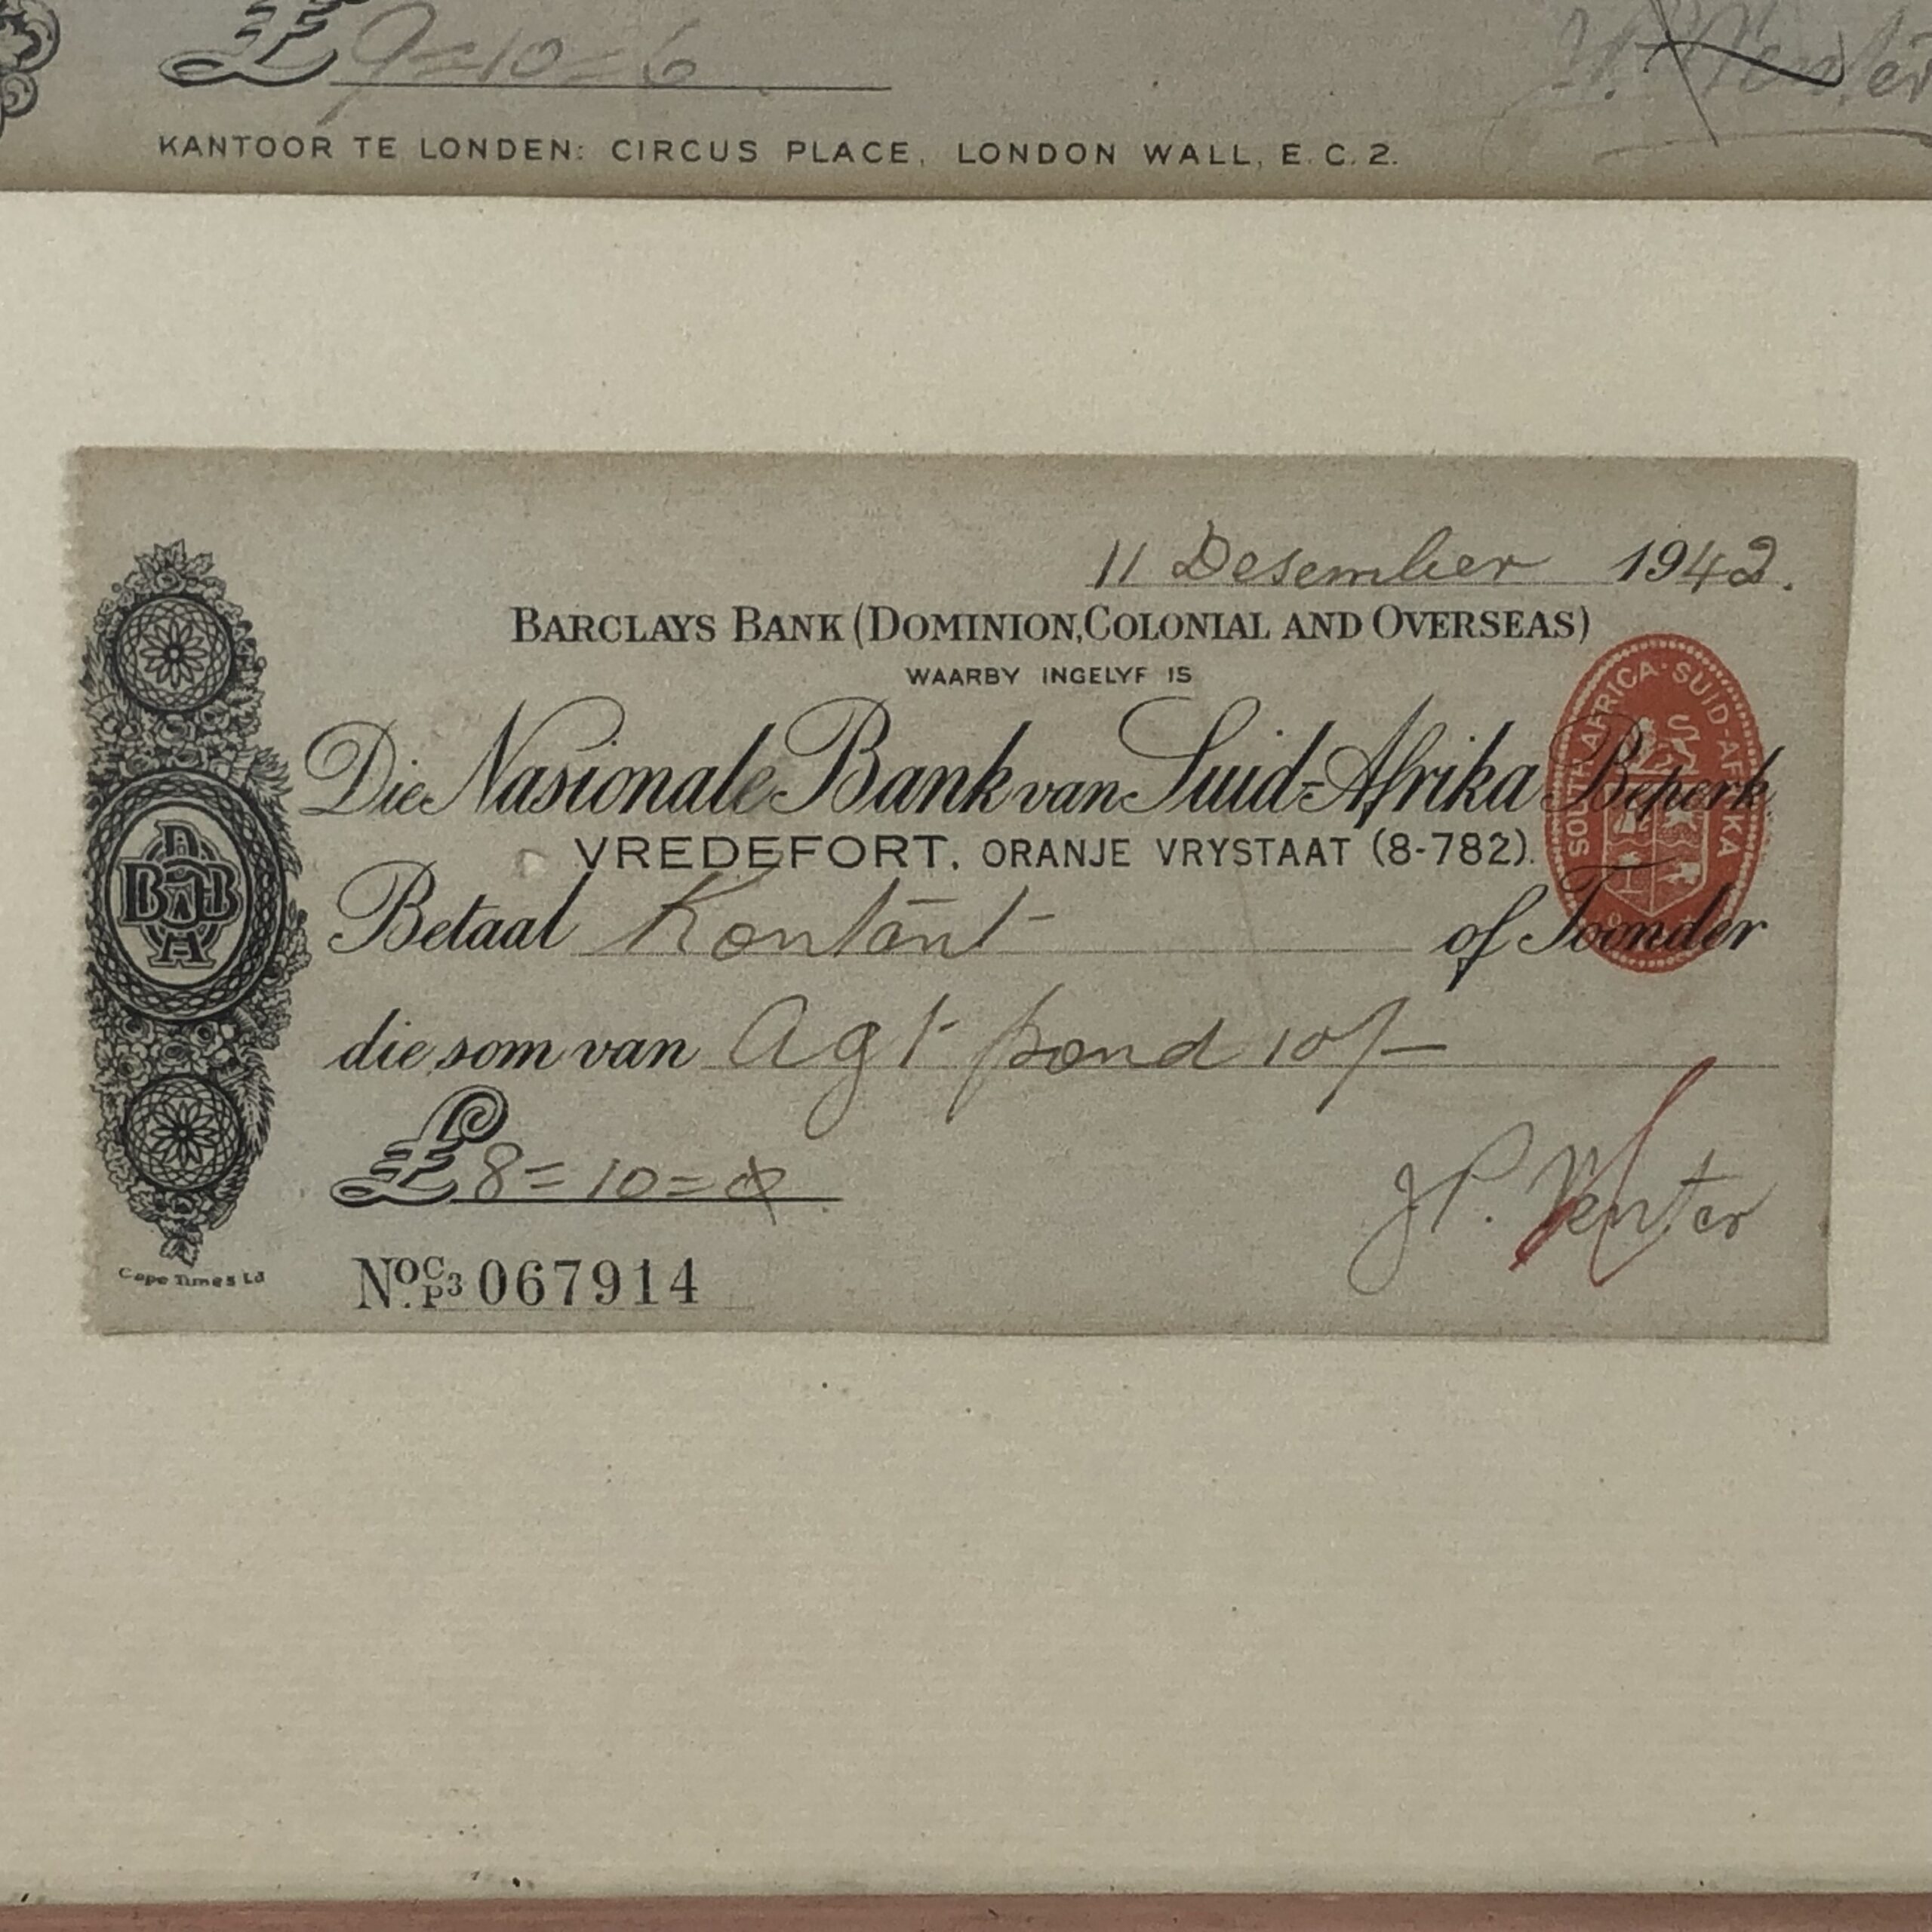 £ 9=10=6
J.P. Venter
KANTOOR TE LONDEN: CIRCUS PLACE, LONDON WALL, E.C.2.
11 Desember 1942.
BARCLAYS BANK (DOMINION, COLONIAL AND OVERSEAS)
WAARBY INGELYF IS
Die Nasionale Bank van Suid-Afrika Beperk
SOUTH AFRICA · SUID-AFRIKA
VREDEFORT, ORANJE VRYSTAAT (8-782).
Betaal Kontant of Toonder
die som van Agt pond 10/-
£ 8=10=0
J.P. Venter
No. C/P3 067914
Cape Times Ld